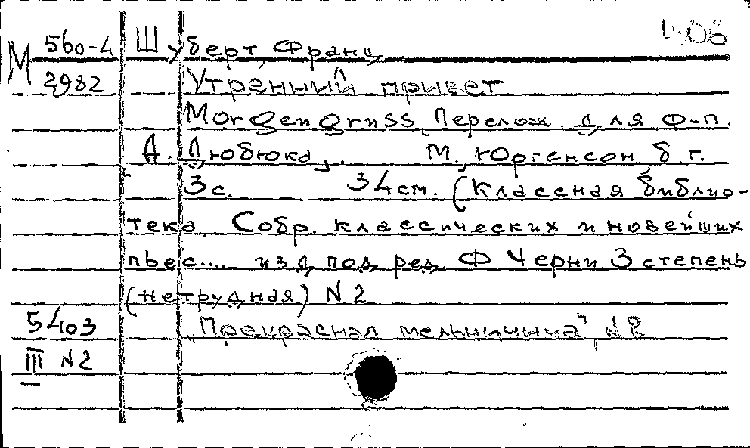 М 560-4 Шуберт, Франц 1-08
2982 Утренний привет
Morgengruss. Перелож. для ф-п.
А. Дюбюка, . М., Юргенсон б. г.
3 с. 34 см. (Классная библио-
тека. Собр. классических и новейших
пьес.... изд. под ред. Ф Черни 3 степень
(нетрудная) N 2
5403 "Прекрасная мельничиха",
III N2